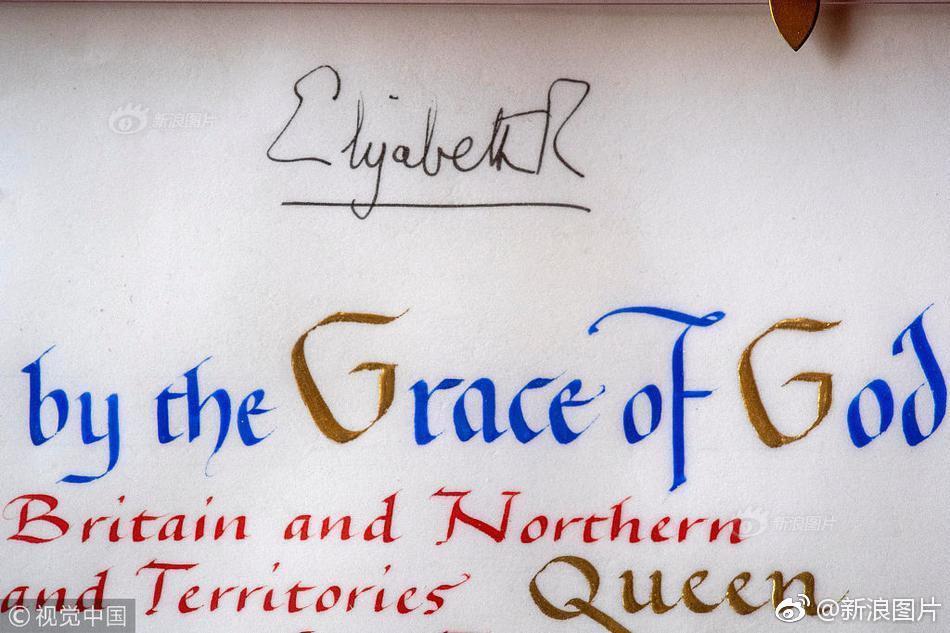 新浪图片
Elizabeth R
by the Grace of God
Britain and Northern
新浪图片
and Territories Queen
© 视觉中国
@新浪图片